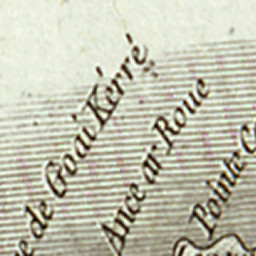 de Goai Kérré
Ance ar Roue
Pointe